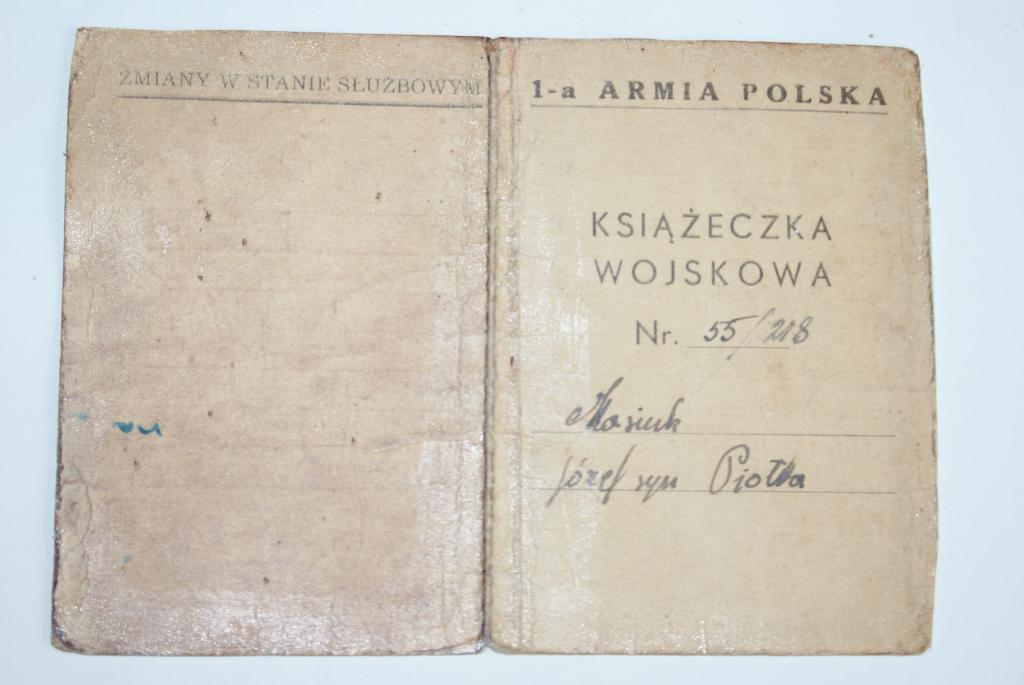 ZMIANY W STANIE SŁUŻBOWYM
na
1-a ARMIA POLSKA
KSIĄŻECZKA
WOJSKOWA
Nr. 55/218
Masiuk
Józef syn Piotra